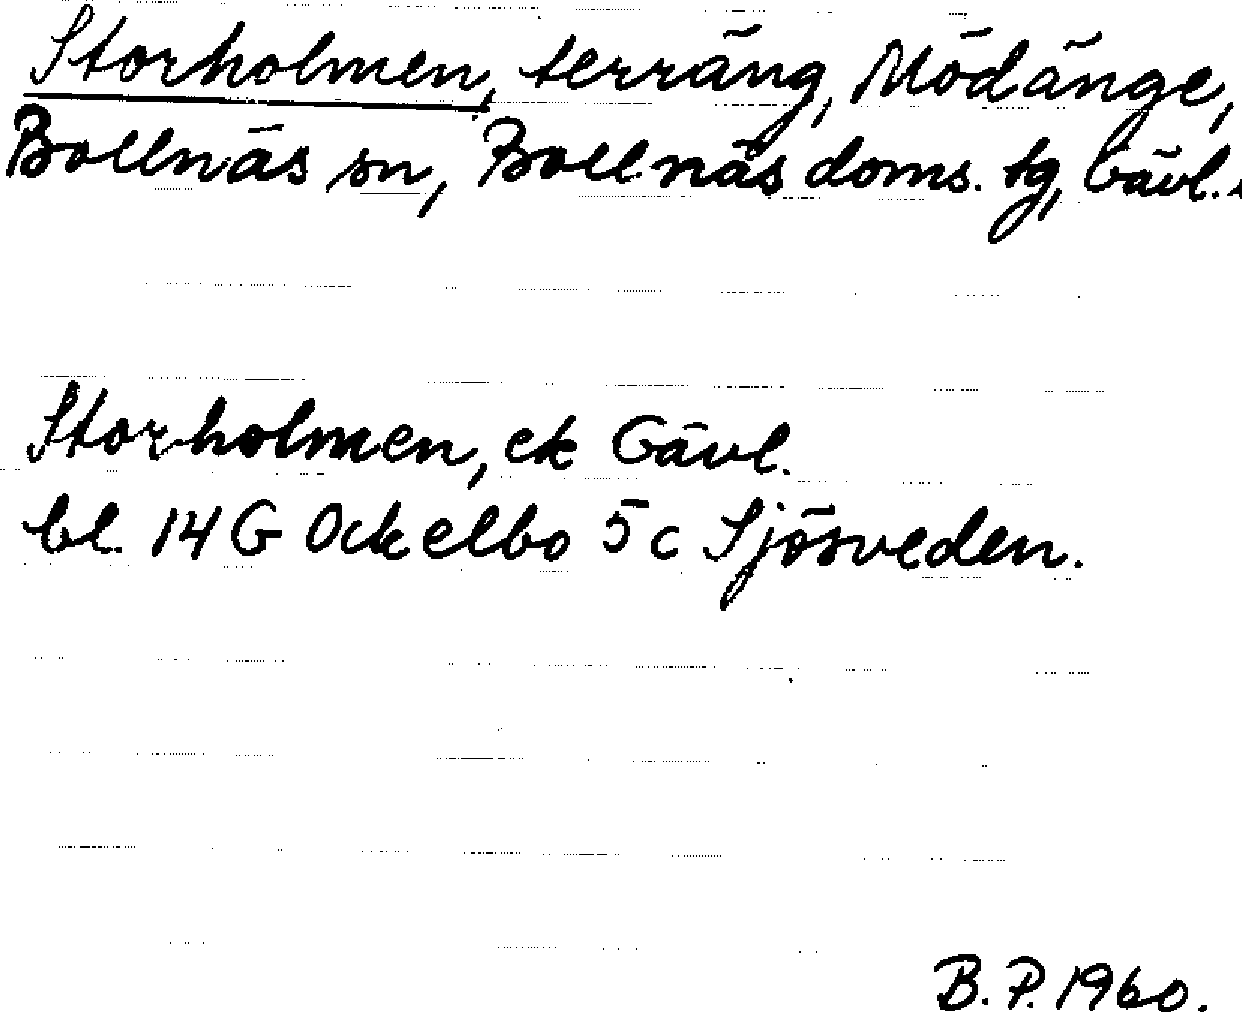 Storholmen, terräng, Mödänge,
Bollnäs sn, Bollnäs doms. tg, Gävl.
Storholmen, ek Gävl.
bl. 14 G Ockelbo 5 c Sjösveden.
B. P. 1960.